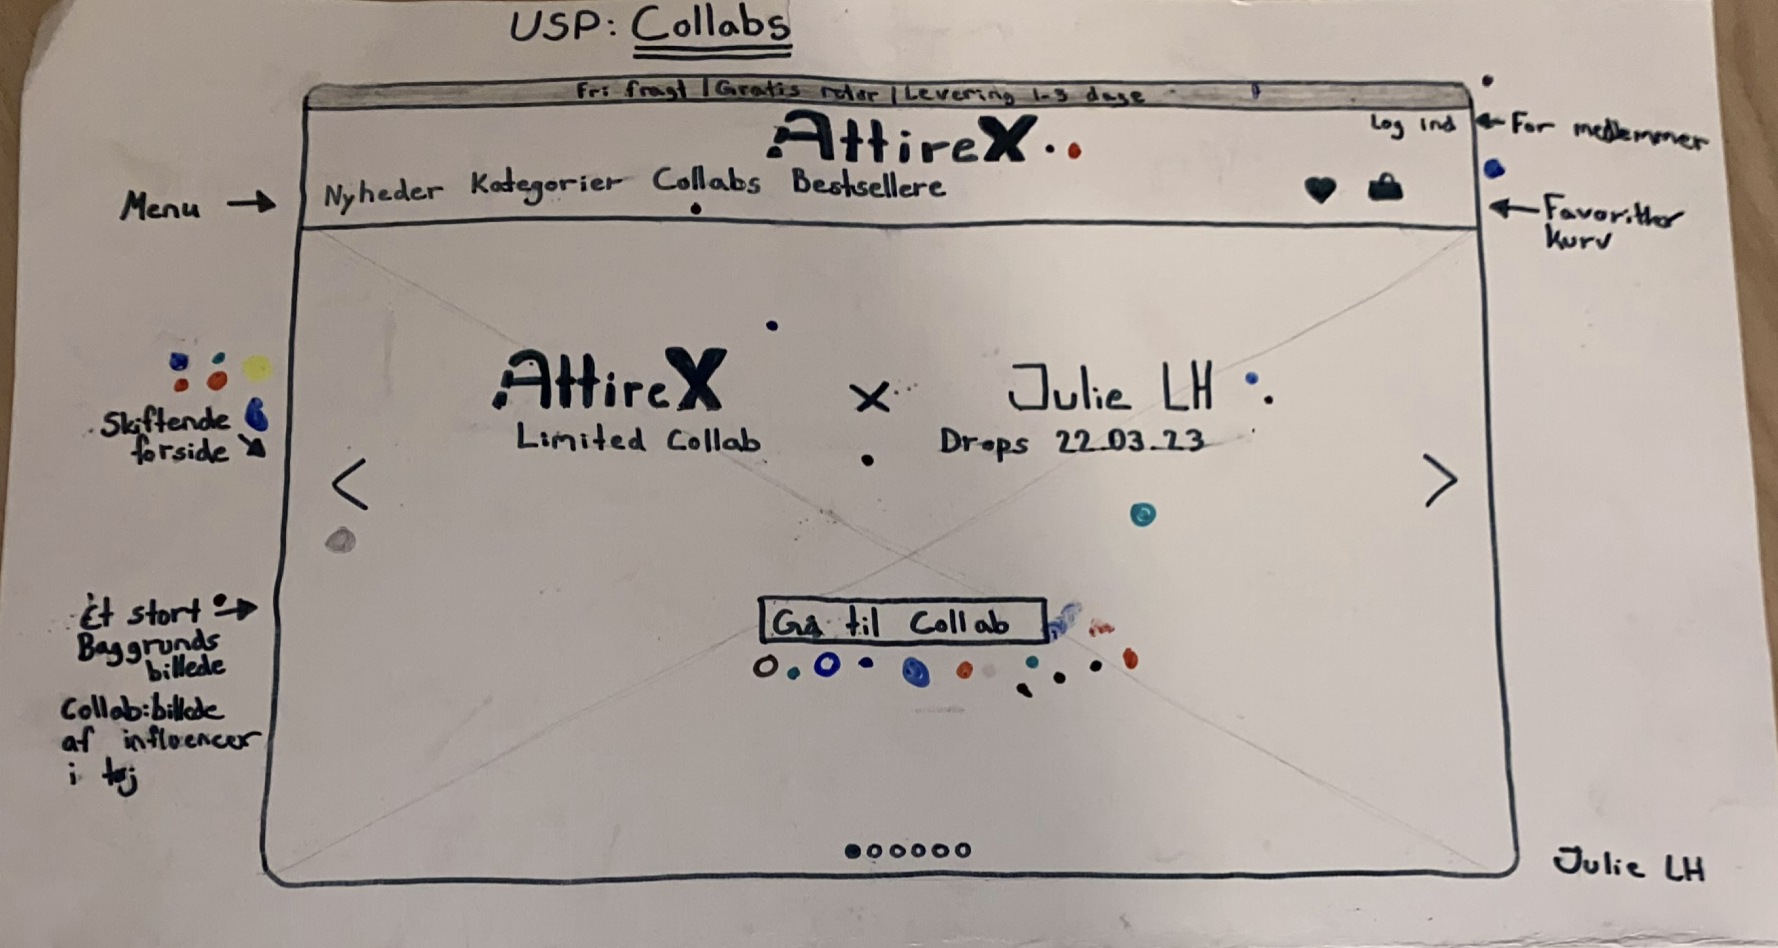 USP: Collabs
Fri fragt | Gratis retur | Levering 1-3 dage
AttireX
Log ind
For medlemmer
Menu
Nyheder Kategorier Collabs Bestsellere
Favoritter
kurv
AttireX x Julie LH
Limited Collab Drops 22.03.23
Skiftende
forside
< >
Ét stort
Baggrunds
billede
Collab:billede
af influencer
i tøj
Gå til Collab
Julie LH